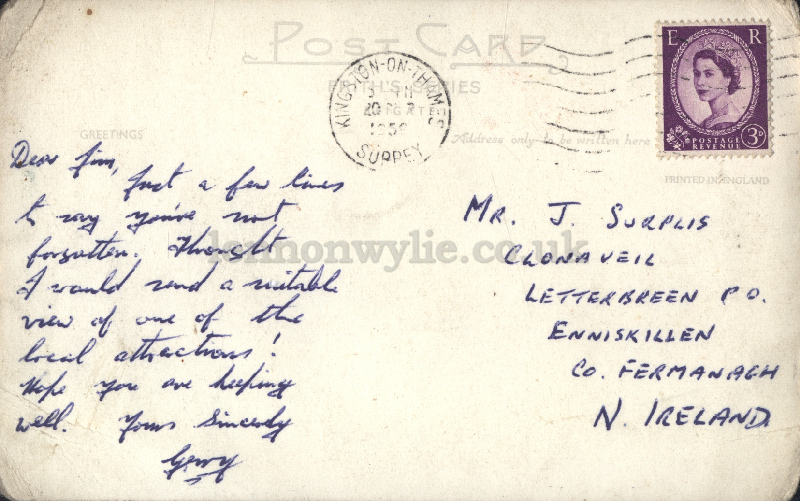 POST CARD
FRITH'S SERIES
REIGATE
GREETINGS
Address only to be written here
PRINTED IN ENGLAND
KINGSTON-ON-THAMES
1959
SURREY
E R
POSTAGE
REVENUE
3D
Dear Jim,
Just a few lines
to say you've not
forgotten. Thought
I would send a suitable
view of one of the
local attractions!
Hope you are keeping
well. Yours Sincerely
Gerry
lennonwylie.co.uk
MR. J. SURPLIS
CLONAVEIL
LETTERBREEN P.O.
ENNISKILLEN
CO. FERMANAGH
N. IRELAND.